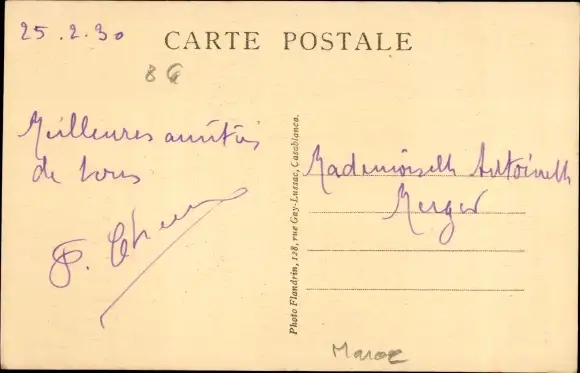 25.2.30
CARTE POSTALE
Meilleures amitiés
de tous
Mademoiselle Antoinette
Photo Flandrin, 128, rue Gay-Lussac, Casablanca.
Maroc